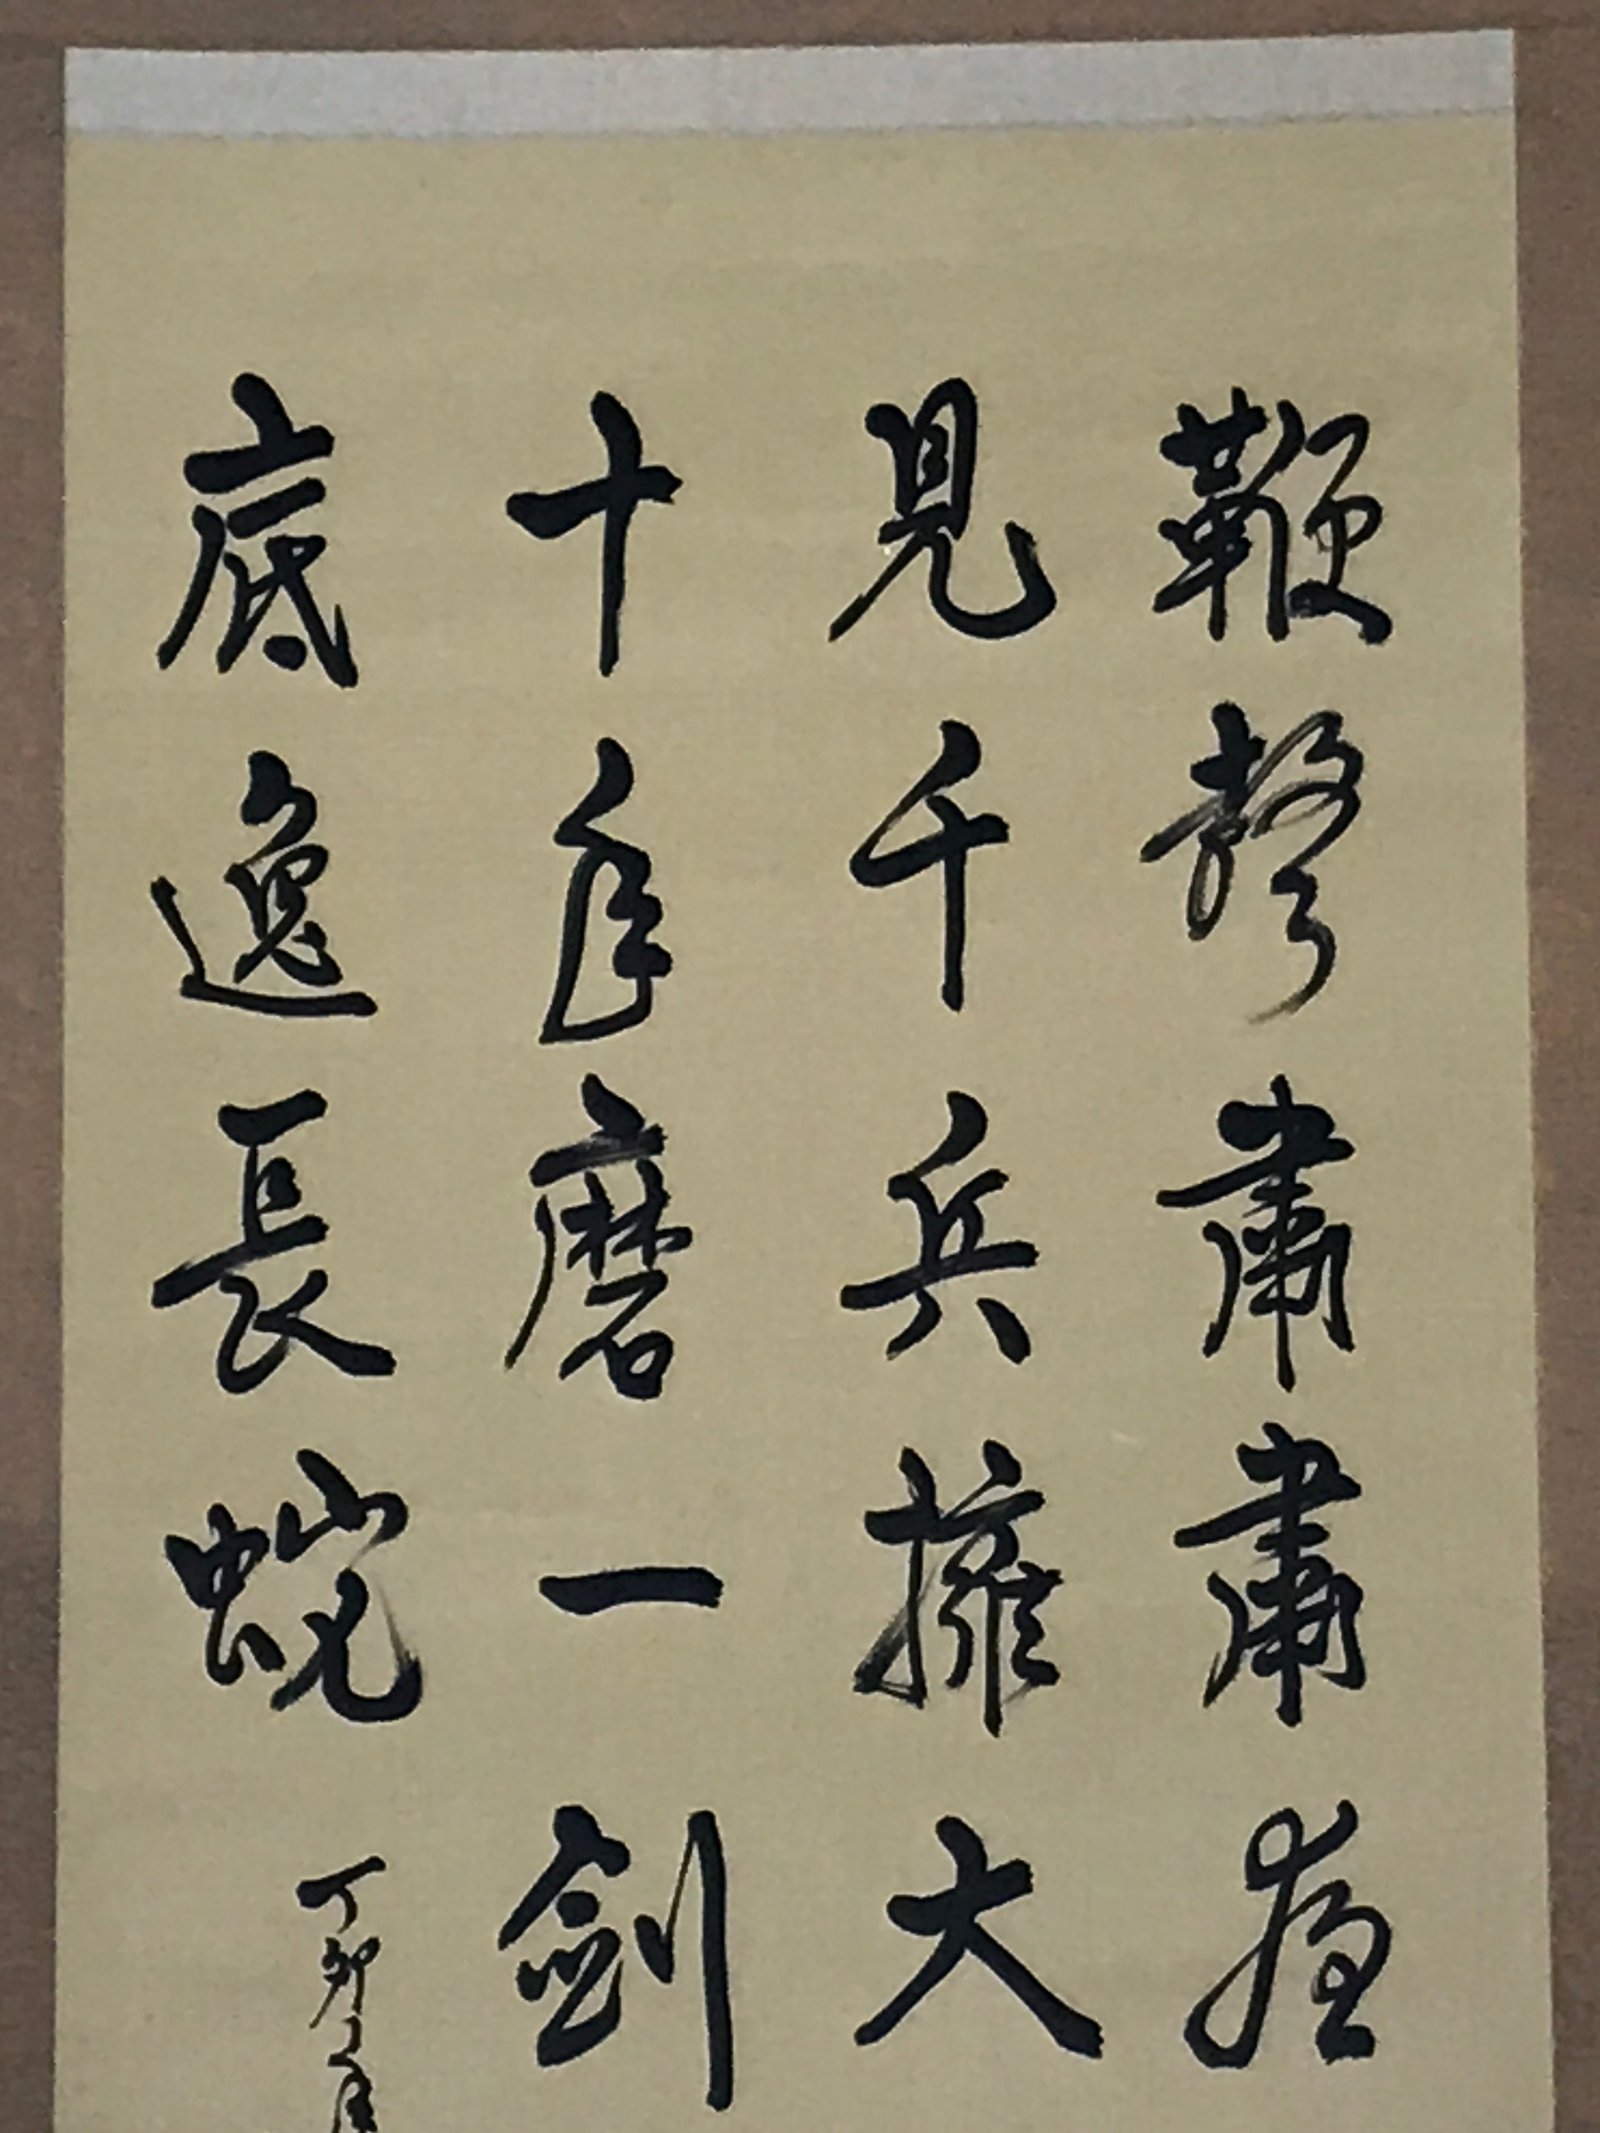 鞭聲肅肅夜
見千兵擁大
十年磨一劍
底逸長蛇
丁卯年